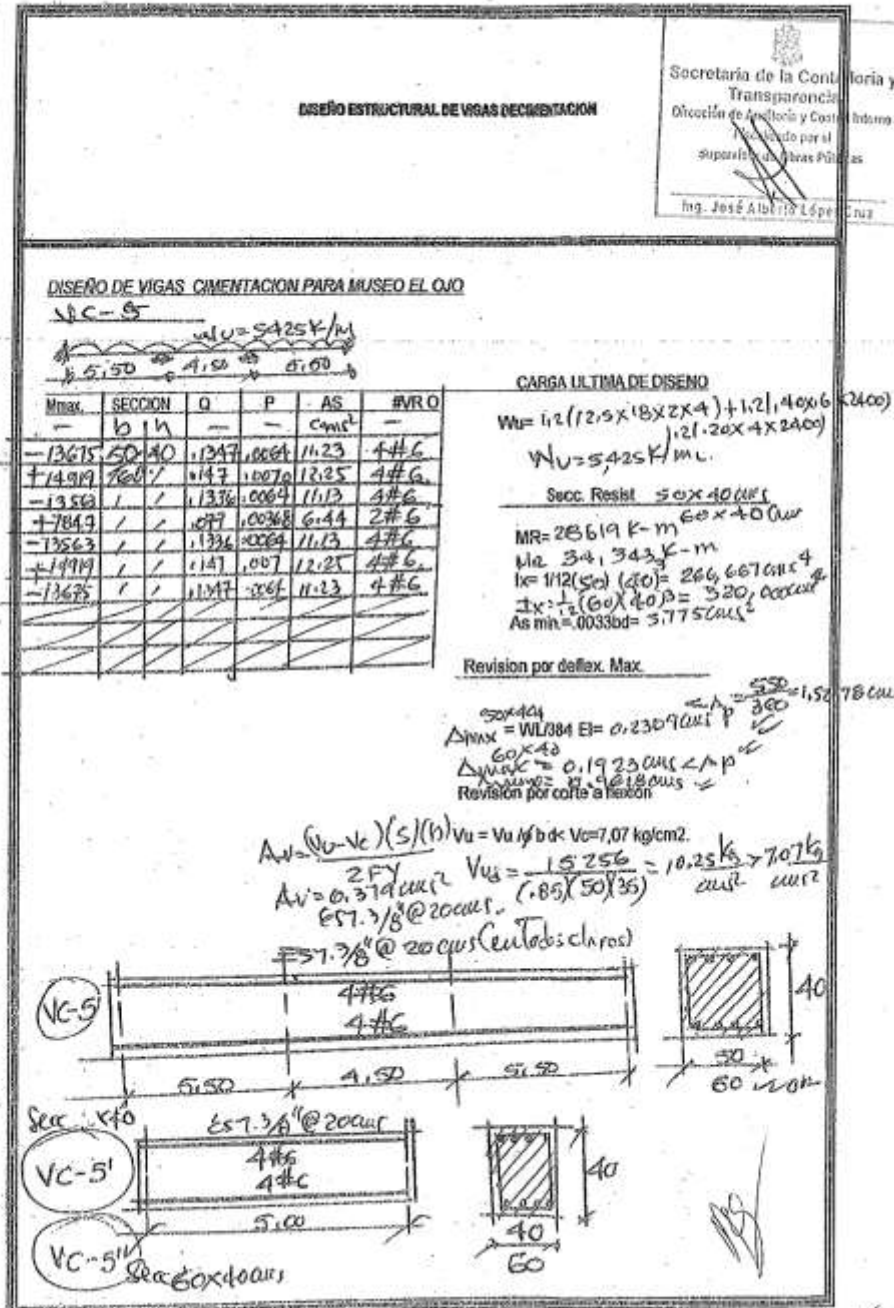 Secretaría de la Contraloría y
Transparencia
Dirección de Auditoría y Control Interno
por el
Supervisor de Obras Públicas
Ing. José Alberto López Cruz
DISEÑO ESTRUCTURAL DE VIGAS DECIMENTACION
DISEÑO DE VIGAS CIMENTACION PARA MUSEO EL OJO
VC-5
WU=5425K/M
5,50 4,50 5,50
Mmax. SECCION Q P AS #VR O
— b h — — cms² —
-13675 50 40 .1347 .0064 11.23 4#6
+14919 / .147 .0070 12.25 4#6
-13563 / / .1336 .0064 11.13 4#6
+7849 / / .077 .00368 6.44 2#6
-13563 / / .1336 .0064 11.13 4#6
+14919 / / .147 .007 12.25 4#6
-13675 / / .1347 .0064 11.23 4#6
CARGA ULTIMA DE DISENO
Wu= 1,2(12,5x18x2x4)+1.2(.40x.6x2400)
1.2(.20x4x2400)
WU=5,425K/ML.
Secc. Resist 50x40cms
60x40cms
MR= 28619 K-m
MR 34,343 K-m
Ix= 1/12(50)(40)³= 266,667cms⁴
Ix=1/12(60)(40)3= 320,000cms⁴
As min=.0033bd= 5.775cms²
Revision por deflex. Max.
50x40
Δmax = WL/384 EI= 0.2309cms < Δp=550/360=1,5278cms
60x40
Δmax = 0.1923cms < Δp
Revisión por corte a flexión
Av=(Vu-Vc)(S)(b)/2FY
Vu = Vu /ø b d< Vc=7,07 kg/cm2.
Av=0.379cms²
Vud = 15256/(.85)(50)(35) = 10.25kg/cms² > 7.07kg/cms²
EST.3/8"@20cms.
EST.3/8"@20cms(en todos claros)
VC-5
4#6
4#6
40
5,50 4,50 5,50
50
60
Secc. x40
EST.3/8"@20cms
VC-5'
4#6
4#6
40
5.00
40
60
VC-5''
Secc 60x40cms